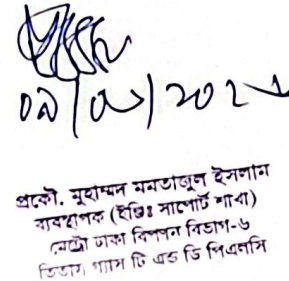 প্রকৌ. মুহাম্মদ মমতাজুল ইসলাম
ব্যবস্থাপক (ইঞ্জিঃ সাপোর্ট শাখা)
মেট্রো ঢাকা বিপণন বিভাগ-৬
তিতাস গ্যাস টি এন্ড ডি পিএলসি